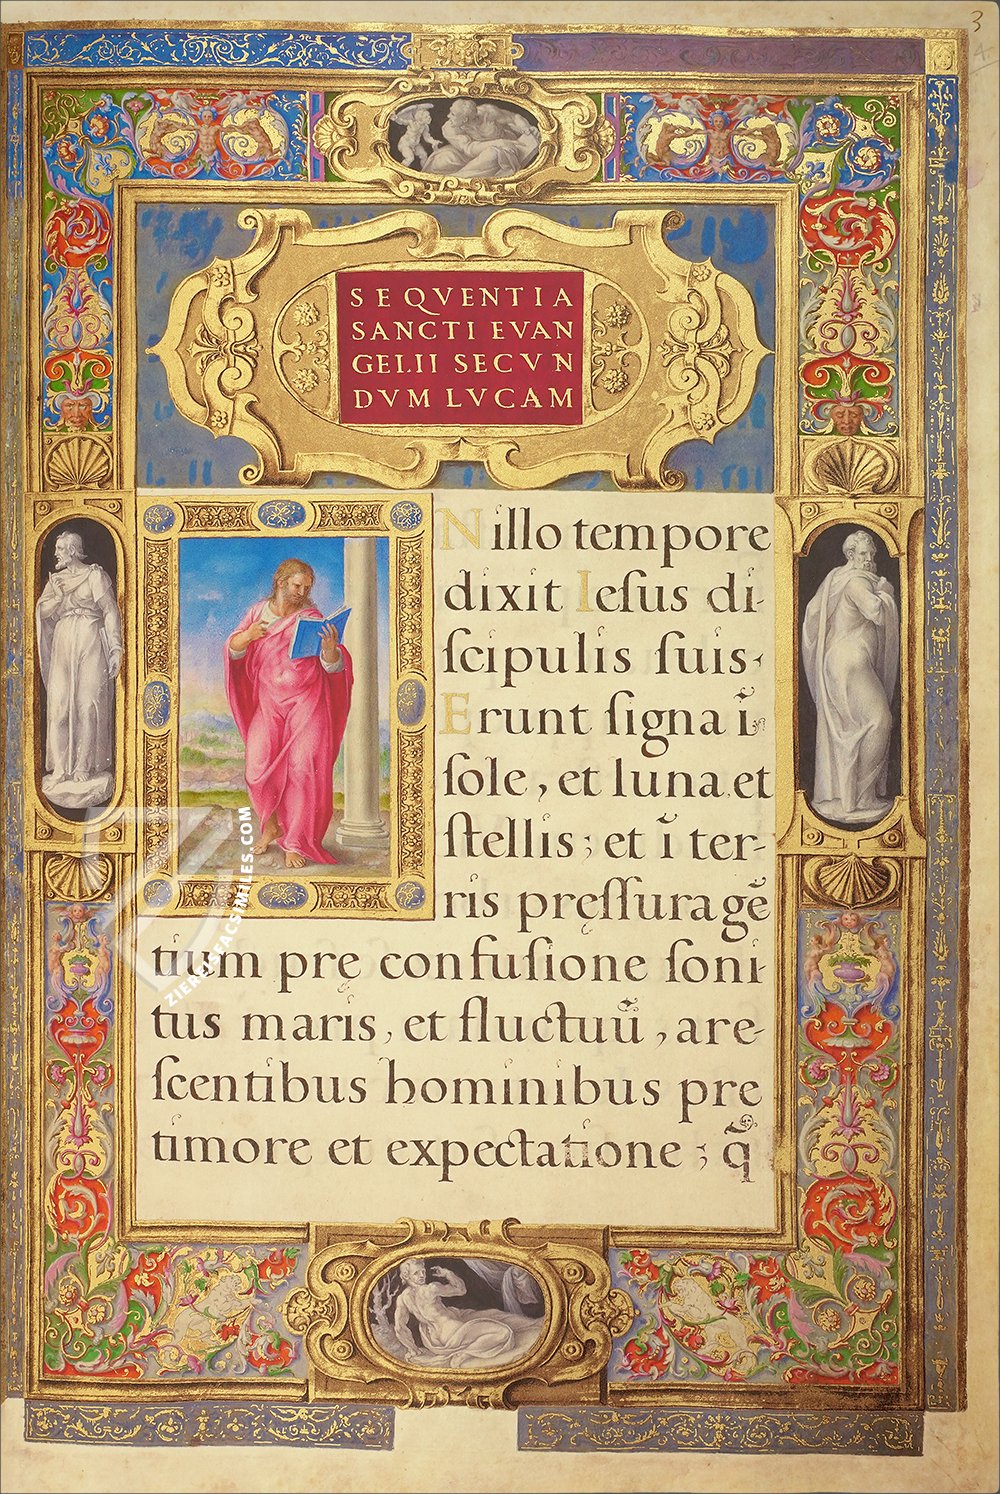 3
4
SEQVENTIA
SANCTI EVAN
GELII SECVN
DVM LVCAM
N illo tempore
dixit Ieſus di-
ſcipulis ſuis.
Erunt ſigna ī
ſole, et luna et
ſtellis; et ī ter-
ris pręſſura gē
tium prę confuſione ſoni-
tus maris, et fluctuū, are-
ſcentibus hominibus pre
timore et expectatione; q̄
ZIEREIS FACSIMILES.COM